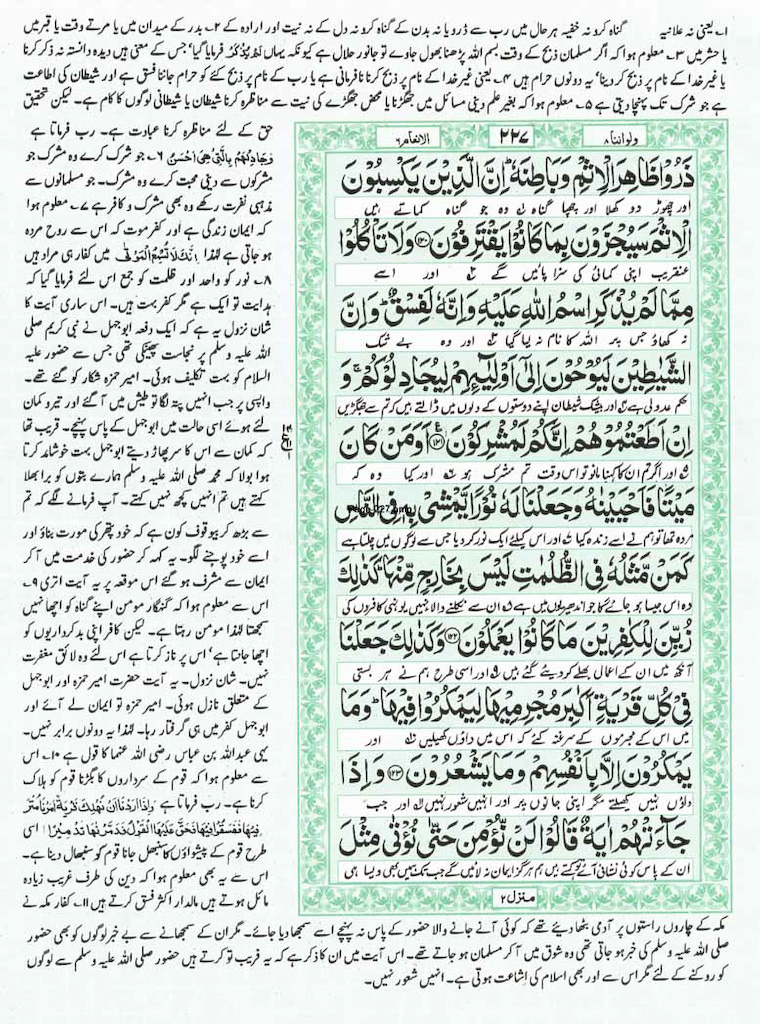 ۱؎ یعنی نہ علانیہ گناہ کرو نہ خفیہ ہر حال میں رب سے ڈرو یا نہ بدن کے گناہ کرو نہ دل کے نہ نیت اور ارادہ کے ۲؎ بدر کے میدان میں یا مرتے وقت یا قبر میں
یا حشر میں ۳؎ معلوم ہوا کہ اگر مسلمان ذبح کے وقت بسم اللہ پڑھنا بھول جاوے تو جانور حلال ہے کیونکہ یہاں لَمْ يُذْكَرْ فرمایا گیا، جس کے معنی ہیں دیدہ دانستہ نہ ذکر کرنا
یا غیر خدا کے نام پر ذبح کر دینا، یہ دونوں حرام ہیں ۴؎ یعنی غیر خدا کے نام پر ذبح کرنا نافرمانی ہے یا رب کے نام پر ذبح کئے کو حرام جاننا فسق ہے اور شیطان کی اطاعت
ہے جو شرک تک پہنچا دیتی ہے ۵؎ معلوم ہوا کہ بغیر علم دینی مسائل میں جھگڑنا یا محض جھگڑے کی نیت سے مناظرہ کرنا شیطان یا شیطانی لوگوں کا کام ہے۔ لیکن تحقیق
حق کے لئے مناظرہ کرنا عبادت ہے۔ رب فرماتا ہے
وَجَادِلْهُمْ بِالَّتِي هِيَ اَحْسَنُ ۶؎ جو شرک کرے وہ مشرک جو
مشرکوں سے دینی محبت کرے وہ مشرک۔ جو مسلمانوں سے
مذہبی نفرت رکھے وہ بھی مشرک و کافر ہے ۷؎ معلوم ہوا
کہ ایمان زندگی ہے اور کفر موت کہ اس سے روح مردہ
ہو جاتی ہے لہٰذا اِنَّكَ لَا تُسْمِعُ الْمَوْتٰى میں کفار ہی مراد ہیں
۸؎ نور کو واحد اور ظلمت کو جمع اس لئے فرمایا گیا کہ
ہدایت تو ایک ہے مگر کفر بہت ہیں۔ اس ساری آیت کا
شان نزول یہ ہے کہ ایک دفعہ ابوجہل نے نبی کریم صلی
اللہ علیہ وسلم پر نجاست پھینکی تھی جس سے حضور علیہ
السلام کو بہت تکلیف ہوئی۔ امیر حمزہ شکار کو گئے تھے۔
واپسی پر جب انہیں پتہ لگا تو طیش میں آ گئے اور تیر و کمان
لئے ہوئے اسی حالت میں ابوجہل کے پاس پہنچے۔ قریب تھا
کہ کمان سے اس کا سر پھاڑ دیتے ابوجہل بہت خوشامد کرتا
ہوا بولا کہ محمد صلی اللہ علیہ وسلم ہمارے بتوں کو برا بھلا
کہتے ہیں تم انہیں کچھ نہیں کہتے۔ آپ فرمانے لگے کہ تم
سے بڑھ کر بیوقوف کون ہے کہ خود پتھر کی مورت بناؤ اور
اسے خود پوجنے لگو۔ یہ کہہ کر حضور کی خدمت میں آ کر
ایمان سے مشرف ہو گئے اس موقعہ پر یہ آیت اتری ۹؎
اس سے معلوم ہوا کہ گنہگار مومن اپنے گناہ کو اچھا نہیں
سمجھتا لہٰذا مومن رہتا ہے۔ لیکن کافر اپنی بدکرداریوں کو
اچھا جانتا ہے، اس پر ناز کرتا ہے اس لئے وہ لائق مغفرت
نہیں۔ شان نزول۔ یہ آیت حضرت امیر حمزہ اور ابوجہل
کے متعلق نازل ہوئی۔ امیر حمزہ تو ایمان لے آئے اور
ابوجہل کفر میں ہی گرفتار رہا۔ لہٰذا یہ دونوں برابر نہیں۔
یہی عبداللہ بن عباس رضی اللہ عنہما کا قول ہے ۱۰؎ اس
سے معلوم ہوا کہ قوم کے سرداروں کا بگڑنا قوم کو ہلاک
کرنا ہے۔ رب فرماتا ہے وَاِذَا اَرَدْنَا اَنْ نُّهْلِكَ قَرْيَةً اَمَرْنَا مُتْرَ
فِيْهَا فَفَسَقُوْا فِيْهَا فَحَقَّ عَلَيْهَا الْقَوْلُ فَدَمَّرْنٰهَا تَدْمِيْرًا اسی
طرح قوم کے پیشواؤں کا سنبھل جانا قوم کو سنبھال دینا ہے۔
اس سے یہ بھی معلوم ہوا کہ دین کی طرف غریب زیادہ
مائل ہوتے ہیں مالدار اکثر فسق کرتے ہیں ۱۱؎ کفار مکہ نے
ولواننا ۸
۲۲۷
الانعام ۶
ذَرُوْا ظَاهِرَ الْاِثْمِ وَبَاطِنَهٗ ؕ اِنَّ الَّذِيْنَ يَكْسِبُوْنَ
اور چھوڑ دو کھلا اور چھپا گناہ وہ جو گناہ کماتے ہیں
الْاِثْمَ سَيُجْزَوْنَ بِمَا كَانُوْا يَقْتَرِفُوْنَ ﴿۱۲۰﴾ وَلَا تَاْكُلُوْا
عنقریب اپنی کمائی کی سزا پائیں گے اور اسے
مِمَّا لَمْ يُذْكَرِ اسْمُ اللّٰهِ عَلَيْهِ وَاِنَّهٗ لَفِسْقٌ ؕ وَاِنَّ
نہ کھاؤ جس پر اللہ کا نام نہ لیا گیا اور وہ بے شک
الشَّيٰطِيْنَ لَيُوْحُوْنَ اِلٰٓى اَوْلِيٰٓـِٕهِمْ لِيُجَادِلُوْكُمْ ۚ وَ
حکم عدولی ہے اور بیشک شیطان اپنے دوستوں کے دلوں میں ڈالتے ہیں کہ تم سے جھگڑیں
اِنْ اَطَعْتُمُوْهُمْ اِنَّكُمْ لَمُشْرِكُوْنَ ﴿۱۲۱﴾ اَوَمَنْ كَانَ
اور اگر تم ان کا کہنا مانو تو اس وقت تم مشرک ہو اور کیا وہ کہ
مَيْتًا فَاَحْيَيْنٰهُ وَجَعَلْنَا لَهٗ نُوْرًا يَّمْشِيْ بِهٖ فِي النَّاسِ
مردہ تھا تو ہم نے اسے زندہ کیا اور اس کیلئے ایک نور کر دیا جس سے لوگوں میں چلتا ہے
كَمَنْ مَّثَلُهٗ فِي الظُّلُمٰتِ لَيْسَ بِخَارِجٍ مِّنْهَا ؕ كَذٰلِكَ
وہ اس جیسا ہو جائے گا جو اندھیریوں میں ہے ان سے نکلنے والا نہیں یونہی کافروں کی
زُيِّنَ لِلْكٰفِرِيْنَ مَا كَانُوْا يَعْمَلُوْنَ ﴿۱۲۲﴾ وَكَذٰلِكَ جَعَلْنَا
آنکھ میں ان کے اعمال بھلے کر دیئے گئے ہیں اور اسی طرح ہم نے ہر بستی
فِيْ كُلِّ قَرْيَةٍ اَكٰبِرَ مُجْرِمِيْهَا لِيَمْكُرُوْا فِيْهَا ؕ وَمَا
میں اس کے مجرموں کے سرغنہ کئے کہ اس میں داؤں کھیلیں اور
يَمْكُرُوْنَ اِلَّا بِاَنْفُسِهِمْ وَمَا يَشْعُرُوْنَ ﴿۱۲۳﴾ وَاِذَا
داؤں نہیں کھیلتے مگر اپنی جانوں پر اور انہیں شعور نہیں اور جب
جَآءَتْهُمْ اٰيَةٌ قَالُوْا لَنْ نُّؤْمِنَ حَتّٰى نُؤْتٰى مِثْلَ
ان کے پاس کوئی نشانی آئے تو کہتے ہیں ہم ہرگز ایمان نہ لائیں گے جب تک ہمیں بھی ویسا ہی
منزل ۲
مکہ کے چاروں راستوں پر آدمی بٹھا دیئے تھے کہ کوئی آنے جانے والا حضور کے پاس نہ پہنچے اسے سمجھا دیا جائے۔ مگر ان کے سمجھانے سے بے خبر لوگوں کو بھی حضور
صلی اللہ علیہ وسلم کی خبر ہو جاتی تھی وہ شوق میں آ کر مسلمان ہو جاتے تھے۔ اس آیت میں ان کا ذکر ہے کہ یہ فریب تو کرتے ہیں حضور صلی اللہ علیہ وسلم سے لوگوں
کو روکنے کے لئے مگر اس سے اور بھی اسلام کی اشاعت ہوتی ہے۔ انہیں شعور نہیں۔